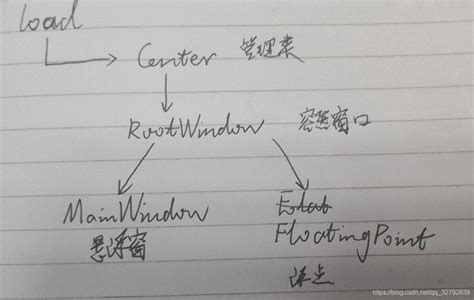 load
Center 管理类
RootWindow 容器窗口
MainWindow
悬浮窗
Float
FloatingPoint
浮点
https://blog.csdn.net/qq_32792839